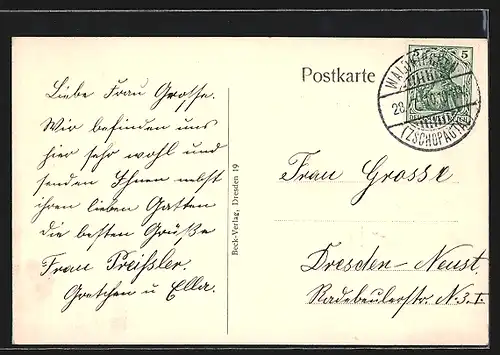 Liebe Frau Grosse.
Wir befinden uns
hier sehr wohl und
senden Ihnen nebst
ihren lieben Gatten
die besten Grüße
Frau Preißler.
Gretchen u Ella.
Beck-Verlag, Dresden 19
Postkarte
5 5
WALDKIRCHEN
28.
(ZSCHOPAUTAL)
Frau Grosse
Dresden-Neust.
Radebeulerstr. N. 3. I.